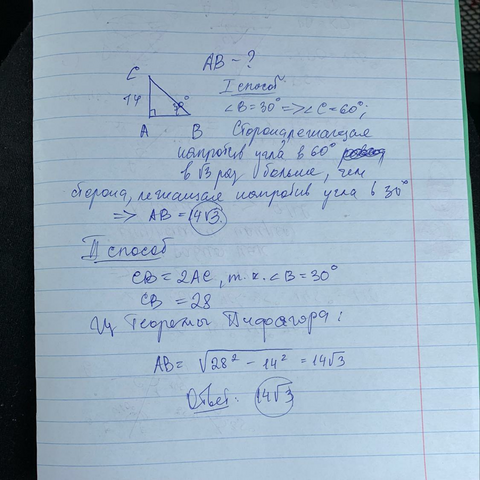 AB - ?
C
14
30°
A B
I способ
∠B = 30° => ∠C = 60°;
Сторона, лежащая
напротив угла в 60°
в √3 раз больше, чем
сторона, лежащая напротив угла в 30°
=> AB = 14√3.
II способ
CB = 2AC, т.к. ∠B = 30°
CB = 28
Из Теоремы Пифагора:
AB = √28² - 14² = 14√3
Ответ: 14√3